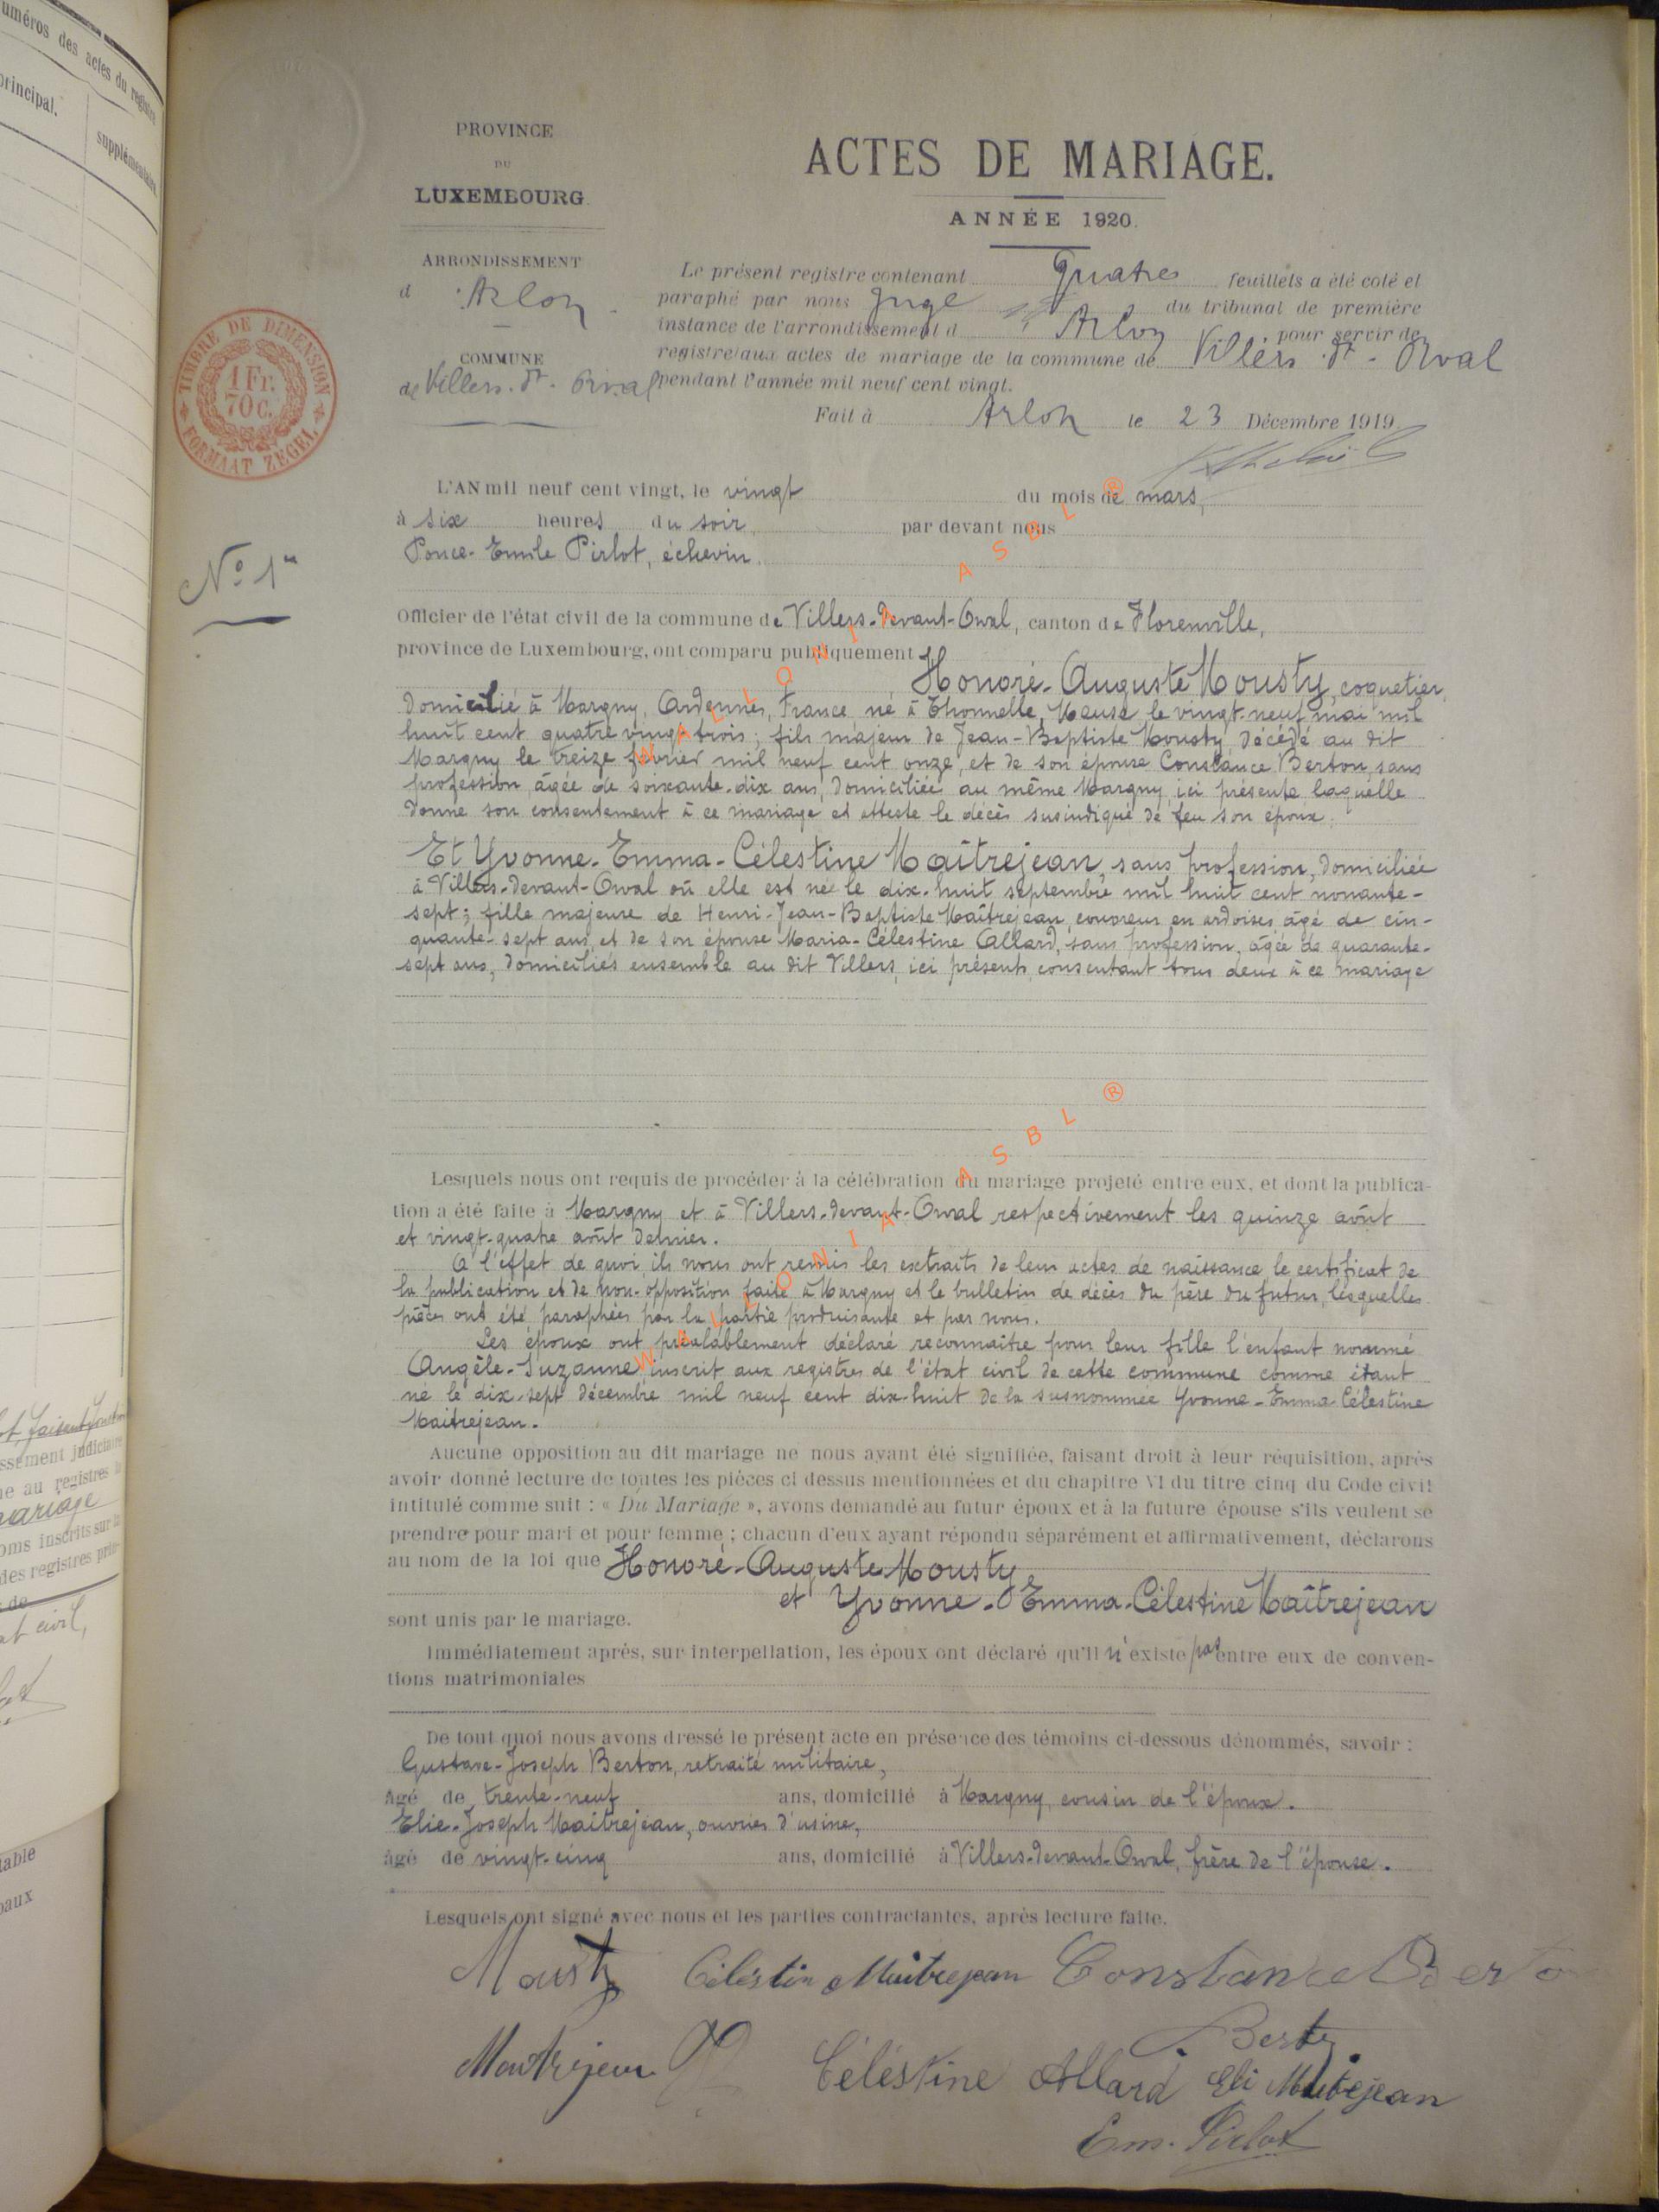 uméros des actes du registre
principal.
supplémentaire
PROVINCE
DU
LUXEMBOURG.
ARRONDISSEMENT
d'Arlon
COMMUNE
de Villers-dt-Orval
TIMBRE DE DIMENSION
1 Fr.
70 c.
FORMAAT ZEGEL
No 1er
ACTES DE MARIAGE.
ANNÉE 1920.
Le présent registre contenant Quatre feuillets a été coté et
paraphé par nous Juge du tribunal de première
instance de l'arrondissement d'Arlon pour servir de
registre aux actes de mariage de la commune de Villers-dt-Orval
pendant l'année mil neuf cent vingt.
Fait à Arlon le 23 Décembre 1919
L'AN mil neuf cent vingt, le vingt du mois de mars,
à six heures du soir, par devant nous
Ponce-Emile Pirlot, échevin.
Officier de l'état civil de la commune de Villers-devant-Orval, canton de Florenville,
province de Luxembourg, ont comparu publiquement
Honoré-Auguste Mousty, coquetier,
domicilié à Margny, Ardennes, France né à Thonnelle, Meuse, le vingt-neuf mai mil
huit cent quatre vingt trois; fils majeur de Jean-Baptiste Mousty, décédé au dit
Margny le treize février mil neuf cent onze, et de son épouse Constance Berton, sans
profession, âgée de soixante-dix ans, domiciliée au même Margny, ici présente laquelle
donne son consentement à ce mariage et atteste le décès susindiqué de feu son époux.
Et Yvonne-Emma-Célestine Maîtrejean, sans profession, domiciliée
à Villers-devant-Orval où elle est née le dix-huit septembre mil huit cent nonante-
sept; fille majeure de Henri-Jean-Baptiste Maîtrejean, couvreur en ardoises, âgé de cin-
quante-sept ans, et de son épouse Maria-Célestine Allard, sans profession, âgée de quarante-
sept ans, domiciliés ensemble au dit Villers, ici présents, consentant tous deux à ce mariage
Lesquels nous ont requis de procéder à la célébration du mariage projeté entre eux, et dont la publica-
tion a été faite à Margny et à Villers-devant-Orval respectivement les quinze août
et vingt-quatre août dernier.
A l'effet de quoi, ils nous ont remis les extraits de leur actes de naissance le certificat de
la publication et de non-opposition faite à Margny et le bulletin de décès du père du futur, lesquelles
pièces ont été paraphées par la partie produisante et par nous.
Les époux ont préalablement déclaré reconnaître pour leur fille l'enfant nommé
Angèle-Suzanne, inscrit aux registres de l'état civil de cette commune comme étant
né le dix-sept décembre mil neuf cent dix-huit de la susnommée Yvonne-Emma Célestine
Maîtrejean.
Aucune opposition au dit mariage ne nous ayant été signifiée, faisant droit à leur réquisition, après
avoir donné lecture de toutes les pièces ci dessus mentionnées et du chapitre VI du titre cinq du Code civil
intitulé comme suit : « Du Mariage », avons demandé au futur époux et à la future épouse s'ils veulent se
prendre pour mari et pour femme ; chacun d'eux ayant répondu séparément et affirmativement, déclarons
au nom de la loi que Honoré-Auguste Mousty
et Yvonne-Emma-Célestine Maîtrejean
sont unis par le mariage.
Immédiatement après, sur interpellation, les époux ont déclaré qu'il n'existe pas entre eux de conven-
tions matrimoniales
De tout quoi nous avons dressé le présent acte en présence des témoins ci-dessous dénommés, savoir :
Gustave-Joseph Berton, retraité militaire,
âgé de trente-neuf ans, domicilié à Margny, cousin de l'époux.
Elie-Joseph Maîtrejean, ouvrier d'usine,
âgé de vingt-cinq ans, domicilié à Villers-devant-Orval, frère de l'épouse.
Lesquels ont signé avec nous et les parties contractantes, après lecture faite.
Mousty Célestin Maitrejean Constance Berto
Maitrejean Célestine Allard Berton
Eli Maitejean
Em. Pirlot
WALLONIA ASBL ®
WALLONIA ASBL ®